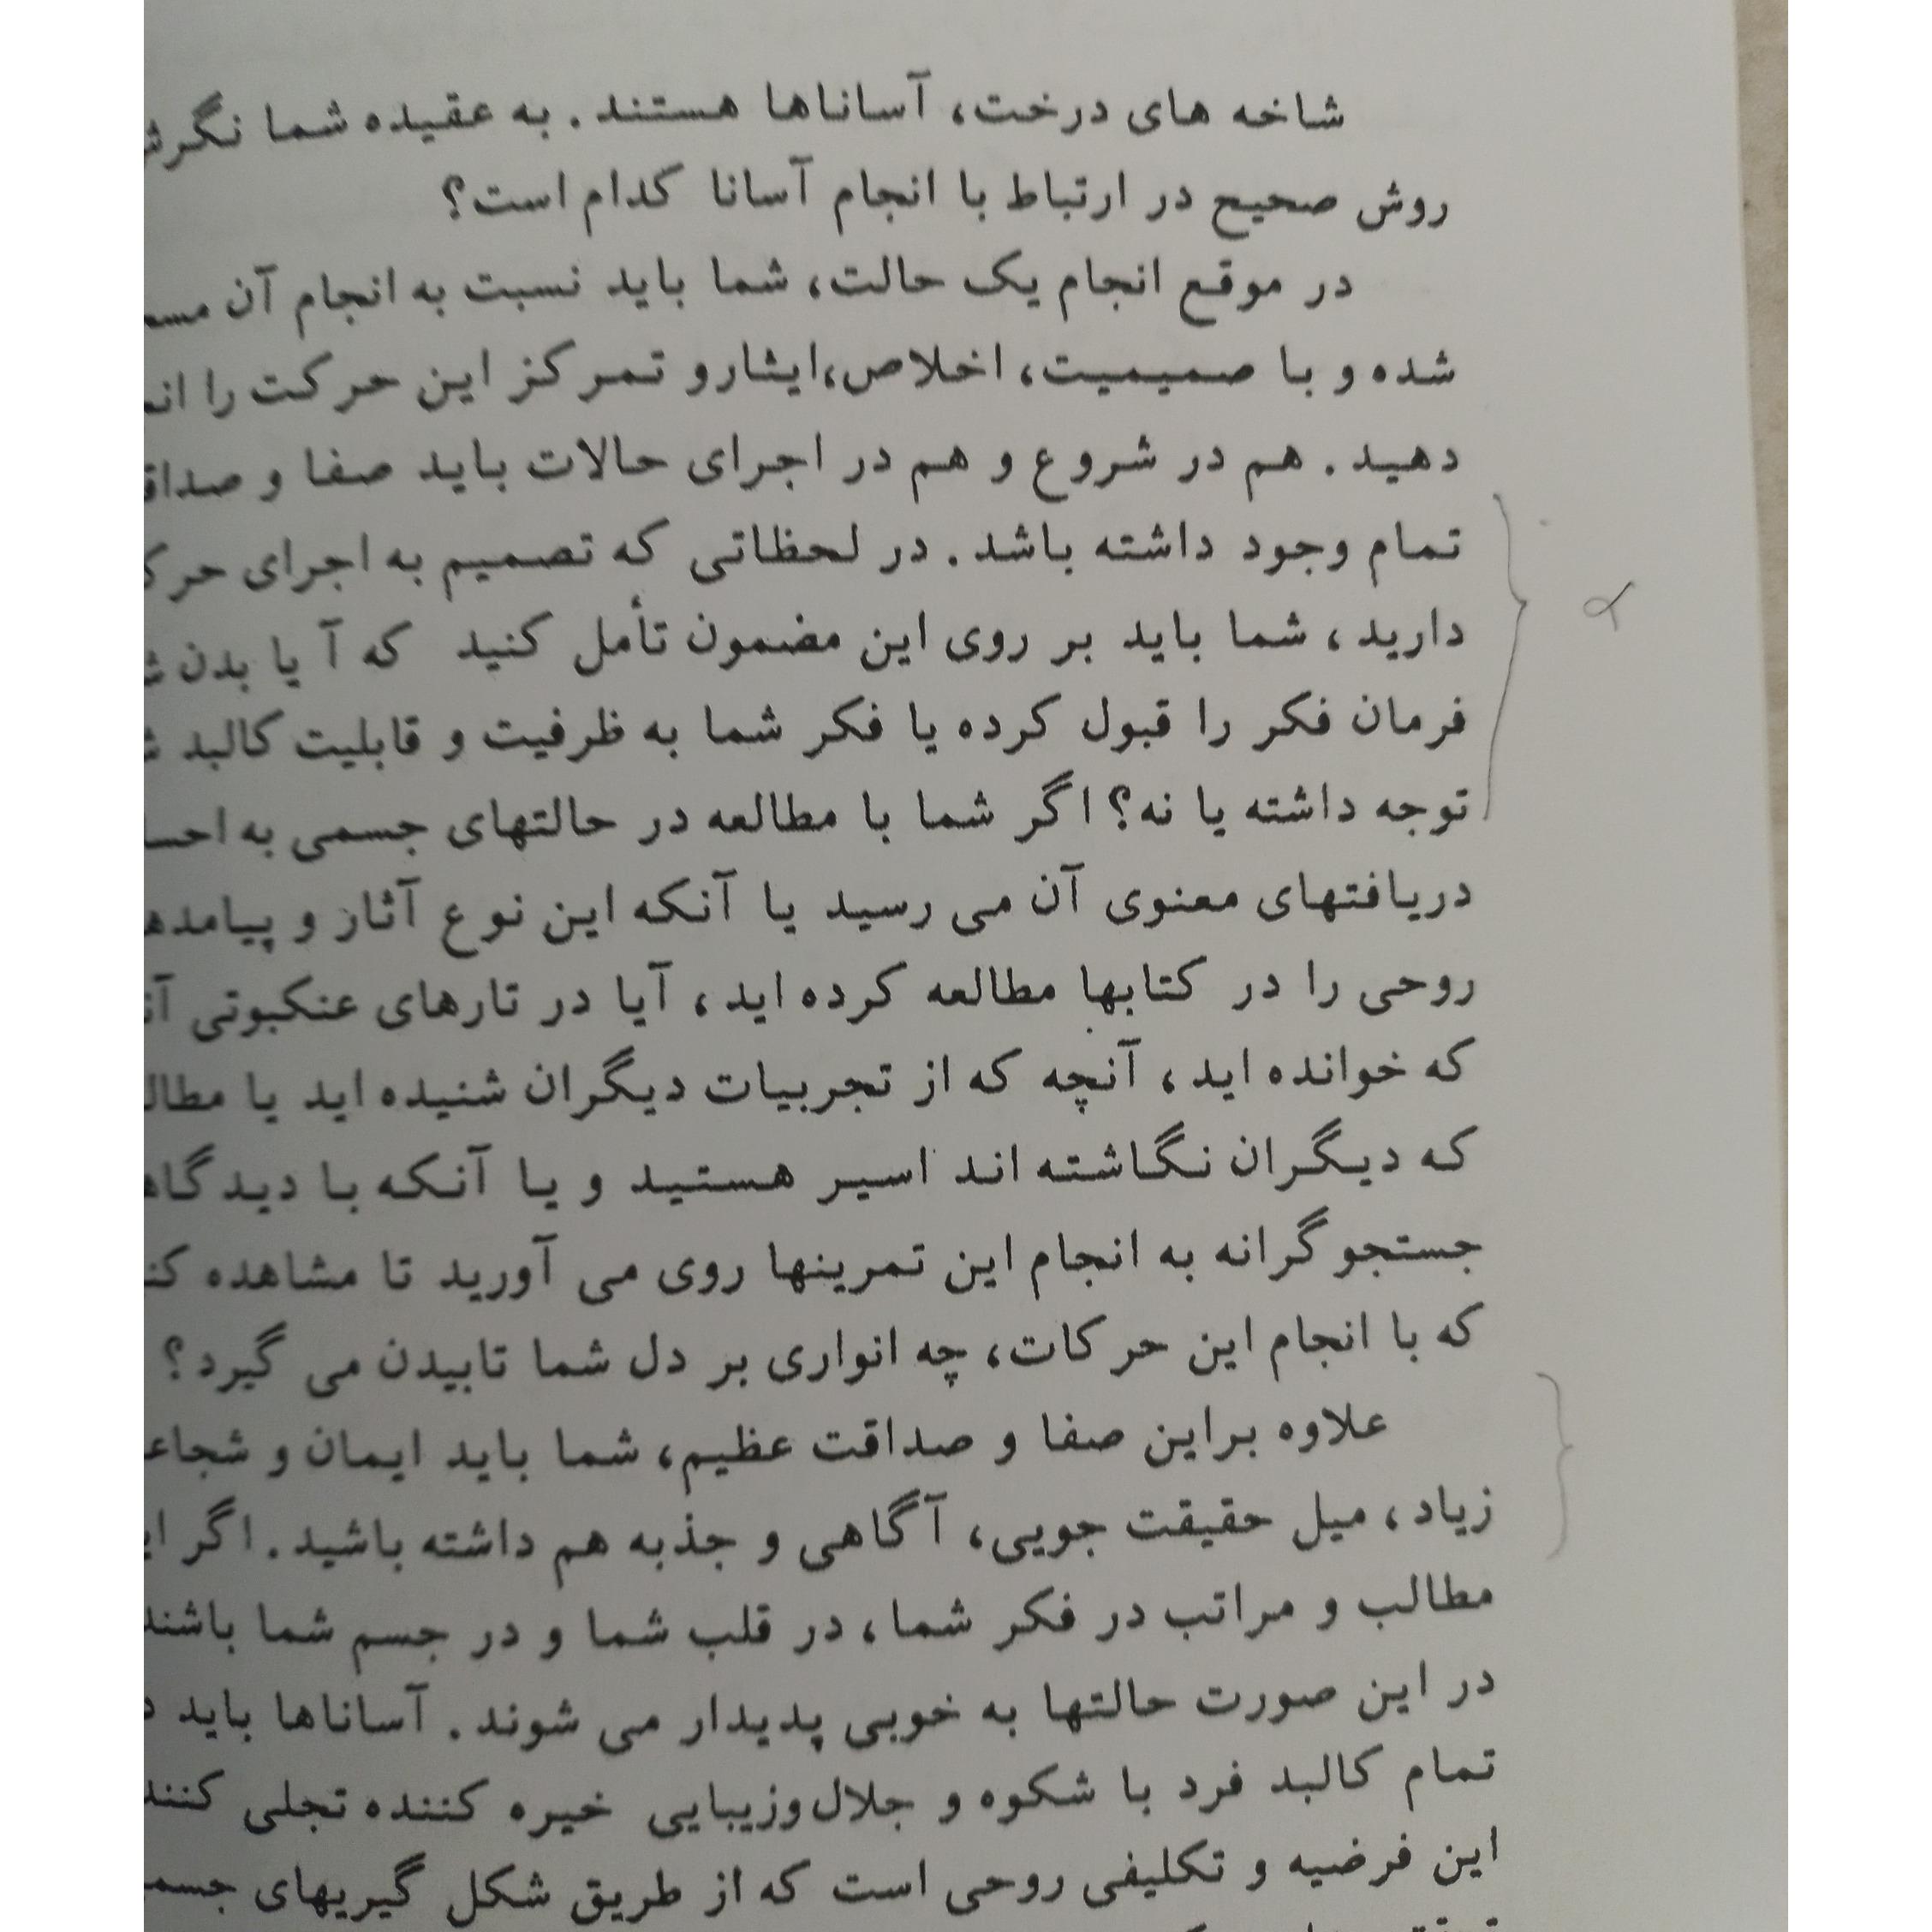 شاخه های درخت، آساناها هستند. به عقیده شما
روش صحیح در ارتباط با انجام آسانا کدام است؟
در موقع انجام یک حالت، شما باید نسبت به انجام آن
شده و با صمیمیت، اخلاص،ایثارو تمرکز این حرکت را
دهید. هم در شروع و هم در اجرای حالات باید صفا و
تمام وجود داشته باشد. در لحظاتی که تصمیم به اجرای
دارید، شما باید بر روی این مضمون تأمل کنید که آیا بدن
فرمان فکر را قبول کرده یا فکر شما به ظرفیت و قابلیت کالبد
توجه داشته یا نه؟ اگر شما با مطالعه در حالتهای جسمی به
دریافتهای معنوی آن می رسید یا آنکه این نوع آثار و
روحی را در کتابها مطالعه کرده اید، آیا در تارهای عنکبوتی
که خوانده اید، آنچه که از تجربیات دیگران شنیده اید یا
که دیگران نگاشته اند اسیر هستید و یا آنکه با
جستجوگرانه به انجام این تمرینها روی می آورید تا مشاهده
که با انجام این حرکات، چه انواری بر دل شما تابیدن می گیرد؟
علاوه براین صفا و صداقت عظیم، شما باید ایمان و
زیاد، میل حقیقت جویی، آگاهی و جذبه هم داشته باشید. اگر
مطالب و مراتب در فکر شما، در قلب شما و در جسم شما باشند
در این صورت حالتها به خوبی پدیدار می شوند. آساناها باید
تمام کالبد فرد با شکوه و جلال وزیبایی خیره کننده تجلی
این فرضیه و تکلیفی روحی است که از طریق شکل گیریهای